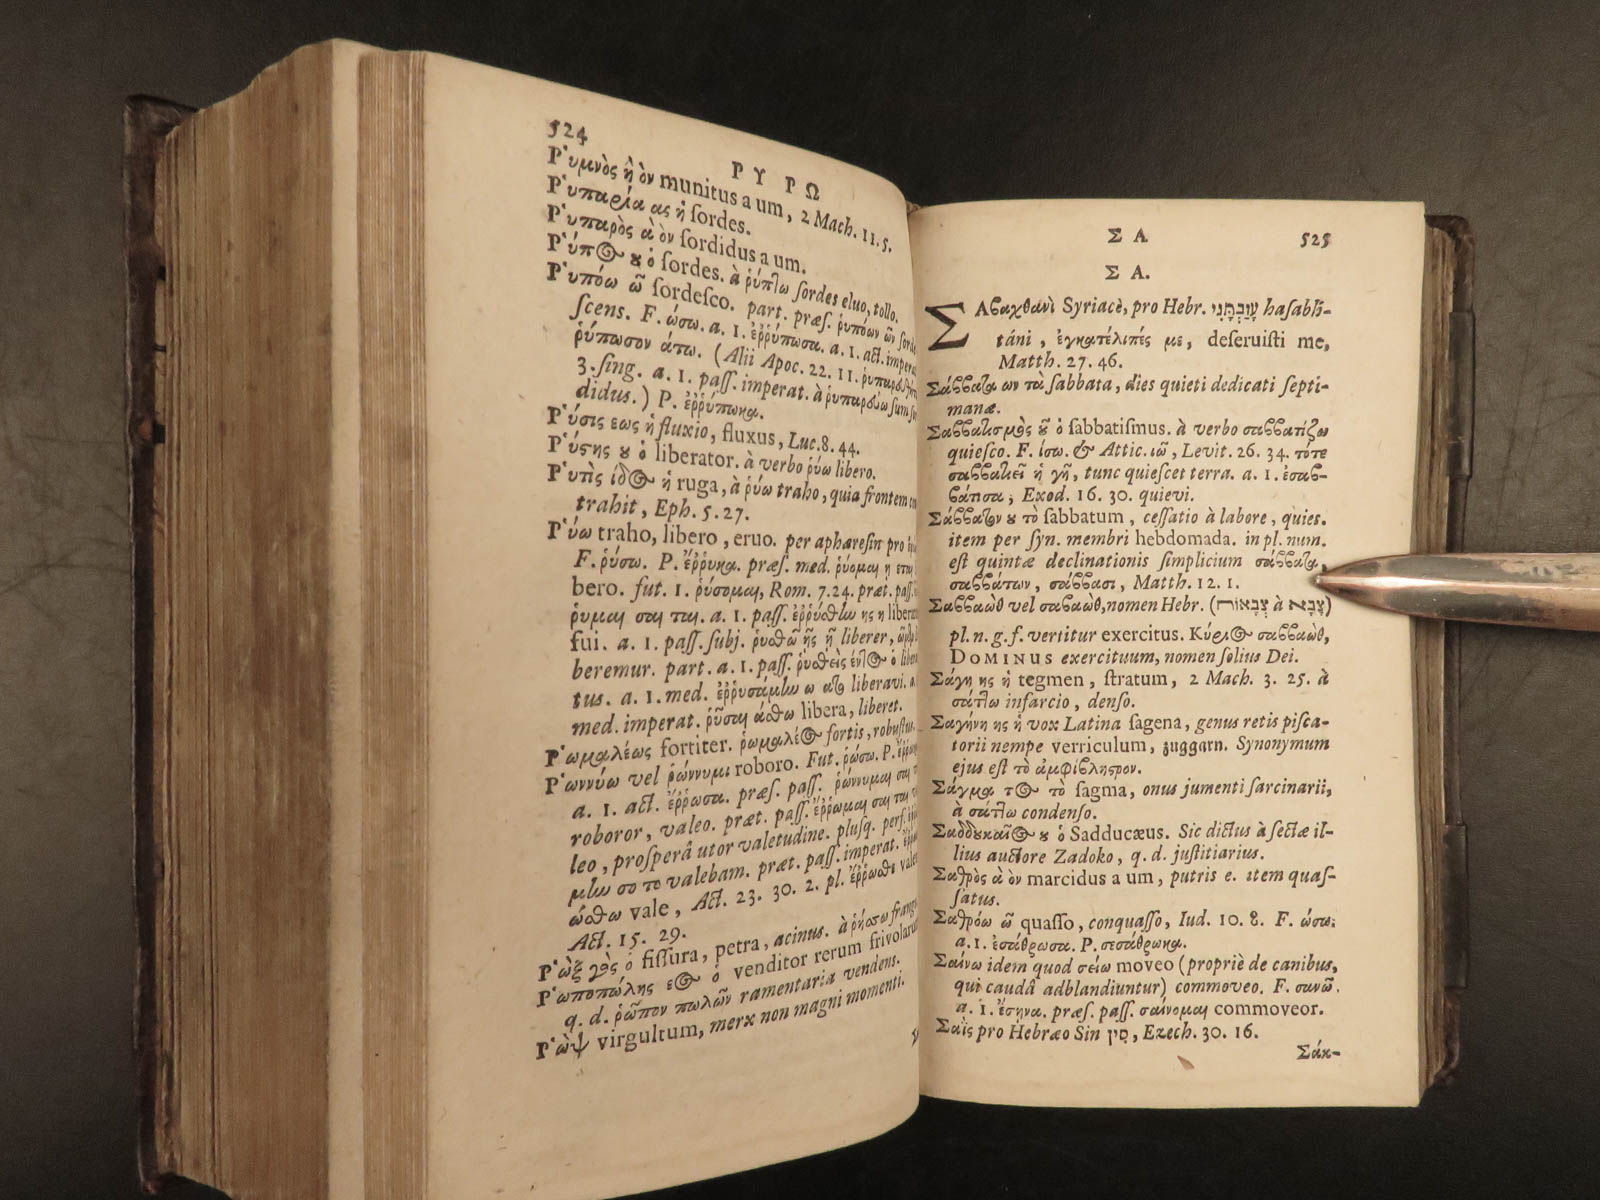 524
ΡΥ ΡΩ
Ῥυμνὸς ὴ ὸν munitus a um, 2 Mach. 11. 5.
Ῥυπαρία ας ἡ ſordes.
Ῥυπαρὸς ὰ ὸν ſordidus a um.
Ῥύπος ου ὁ ſordes. à ῥύπτω ſordes eluo, tollo.
Ῥυπόω ῶ ſordeſco. part. præſ. ῥυπόων ῶν
ſcens. F. ώσω. a. 1. ἐῤῥύπωσα. a. 1. act.
ῥύπωσον άτω. (Alii Apoc. 22. 11.
3. ſing. a. 1. paſſ. imperat. à
didus.) P. ἐῤῥύπωκα.
Ῥύσις εως ἡ fluxio, fluxus, Luc. 8. 44.
Ῥύστης ου ὁ liberator. à verbo ῥύω libero.
Ῥυτὶς ίδος ἡ ruga, à ῥύω traho, quia frontem
trahit, Eph. 5. 27.
Ῥύω traho, libero, eruo. per aphæreſin pro
F. ῥύσω. P. ἔῤῥυκα. præſ. med. ῥύομαι η εται
bero. fut. 1. ῥύσομαι, Rom. 7. 24. præt. paſſ.
ῥυμαι σαι ται. a. 1. paſſ. ἐῤῥύσθην ης η
fui. a. 1. paſſ. ſubj. ῥυσθῶ ῇς ῇ liberer,
beremur. part. a. 1. paſſ. ῥυσθεὶς έντος ὁ
tus. a. 1. med. ἐῤῥυσάμην ω ατο liberavi.
med. imperat. ῥῦσαι άσθω libera, liberet.
Ῥωμαλέως fortiter. ῥωμαλέος fortis,
Ῥωννύω vel ῥώννυμι roboro. Fut. ῥώσω. P.
a. 1. act. ἔῤῥωσα. præſ. paſſ. ῥώννυμαι σαι
roboror, valeo. præt. paſſ. ἔῤῥωμαι σαι ται
leo, proſperâ utor valetudine. pluſq. perf.
μην σο το valebam. præt. paſſ. imperat.
ώσθω vale, Act. 23. 30. 2. pl. ἔῤῥωσθε
Act. 15. 29.
Ῥὼξ γὸς ὁ fiſſura, petra, acinus. à ῥήσσω
Ῥωποπώλης ὁ venditor rerum
q. d. ῥῶπον πωλῶν ramentaria vendens.
Ῥὼψ virgultum, merx non magni momenti.
ΣΑ
525
ΣΑ.
ΣΑβαχθανὶ Syriacè, pro Hebr. עֲזַבְתָּנִי haſabh-
táni, ἐγκατέλιπές με, deſeruiſti me,
Matth. 27. 46.
Σάββατα ων τὰ ſabbata, dies quieti dedicati ſepti-
manæ.
Σαββατισμὸς οῦ ὁ ſabbatiſmus. à verbo σαββατίζω
quieſco. F. ίσω. & Attic. ιῶ, Levit. 26. 34. τότε
σαββατιεῖ ἡ γῆ, tunc quieſcet terra. a. 1. ἐσαβ-
βάτισα, Exod. 16. 30. quievi.
Σάββατον ου τὸ ſabbatum, ceſſatio à labore, quies.
item per ſyn. membri hebdomada. in pl. num.
eſt quintæ declinationis ſimplicium σάββατα,
σαββάτων, σάββασι, Matth. 12. 1.
Σαββαὼθ vel σαβαὼθ, nomen Hebr. (צְבָאוֹת à צָבָא)
pl. n. g. f. vertitur exercitus. Κύριος σαββαὼθ,
DOMINUS exercituum, nomen ſolius Dei.
Σάγη ης ἡ tegmen, ſtratum, 2 Mach. 3. 25. à
σάττω infarcio, denſo.
Σαγήνη ης ἡ vox Latina ſagena, genus retis piſca-
torii nempe verriculum, zuggarn. Synonymum
ejus eſt τὸ ἀμφίβληστρον.
Σάγμα τος τὸ ſagma, onus jumenti ſarcinarii,
à σάττω condenſo.
Σαδδουκαῖος ου ὁ Sadducæus. Sic dictus à ſectæ il-
lius auctore Zadoko, q. d. juſtitiarius.
Σαθρὸς ὰ ὸν marcidus a um, putris e. item quaſ-
ſatus.
Σαθρόω ῶ quaſſo, conquaſſo, Iud. 10. 8. F. ώσω.
a. 1. ἐσάθρωσα. P. σεσάθρωκα.
Σαίνω idem quod σείω moveo (propriè de canibus,
qui caudâ adblandiuntur) commoveo. F. σανῶ.
a. 1. ἔσηνα. præſ. paſſ. σαίνομαι commoveor.
Σαῒς pro Hebræo Sin סִין, Ezech. 30. 16.
Σάκ-